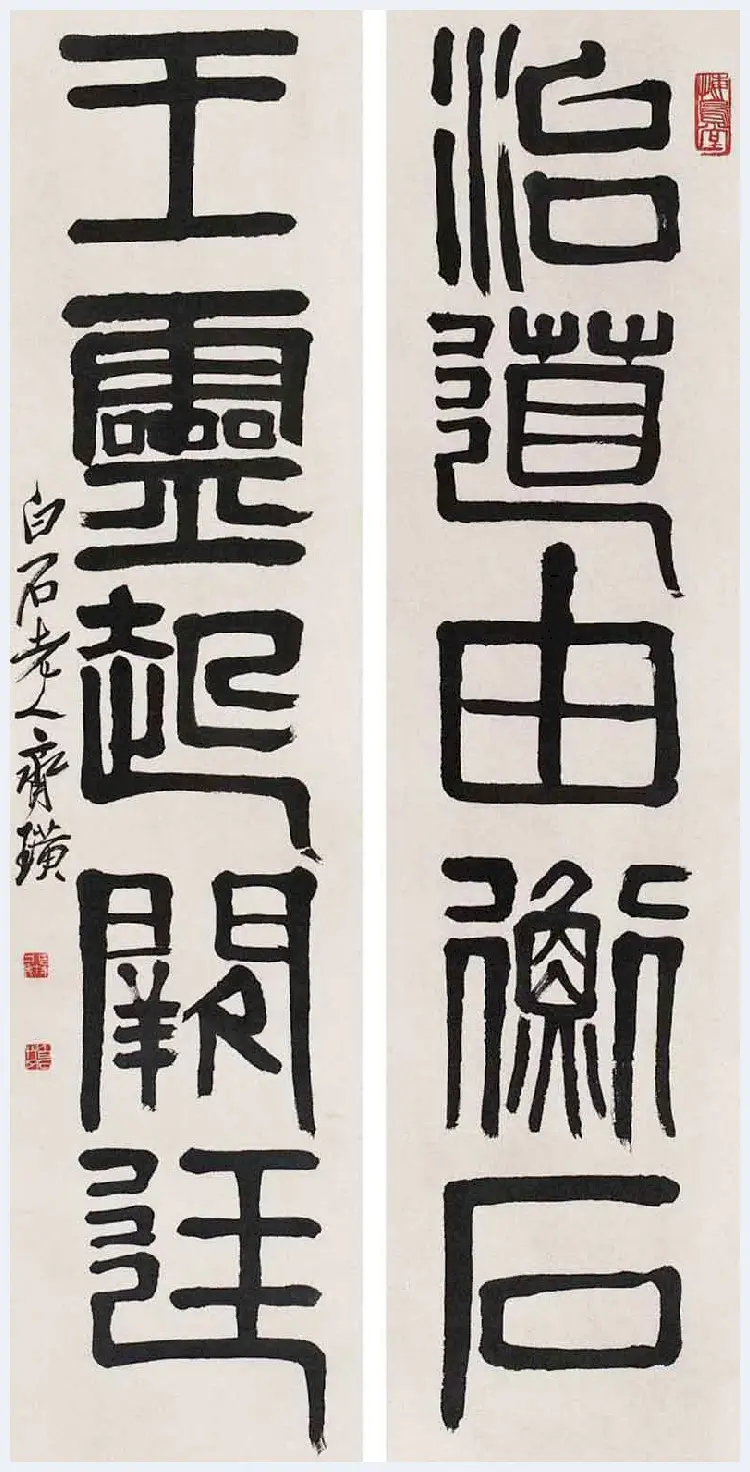 悔烏堂
治道由衡石
王靈起闕廷
白石老人齊璜